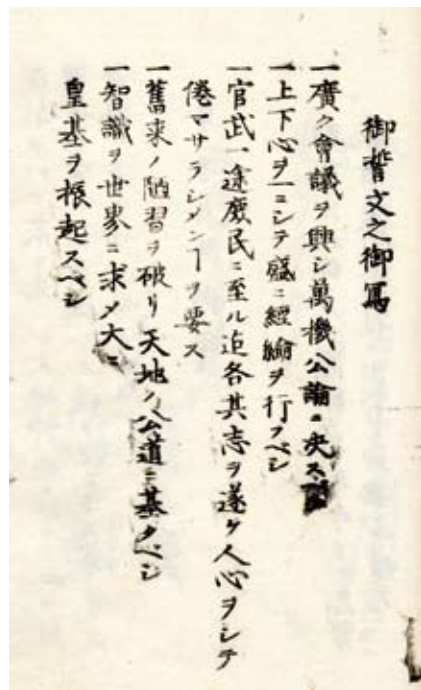 御誓文之御寫
一廣ク會議ヲ興シ萬機公論ニ決スヘシ
一上下心ヲ一ニシテ盛ニ經綸ヲ行フベシ
一官武一途庶民ニ至ル迄各其志ヲ遂ケ人心ヲシテ
倦マサラシメンヿヲ要ス
一舊来ノ陋習ヲ破リ天地ノ公道ニ基クベシ
一智識ヲ世界ニ求メ大ニ
皇基ヲ振起スベシ